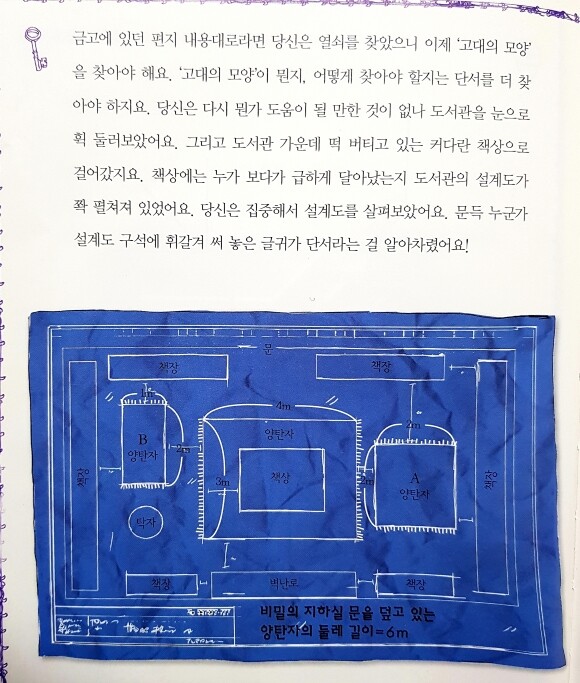 금고에 있던 편지 내용대로라면 당신은 열쇠를 찾았으니 이제 ‘고대의 모양’
을 찾아야 해요. ‘고대의 모양’이 뭔지, 어떻게 찾아야 할지는 단서를 더 찾
아야 하지요. 당신은 다시 뭔가 도움이 될 만한 것이 없나 도서관을 눈으로
휙 둘러보았어요. 그리고 도서관 가운데 떡 버티고 있는 커다란 책상으로
걸어갔지요. 책상에는 누가 보다가 급하게 달아났는지 도서관의 설계도가
쫙 펼쳐져 있었어요. 당신은 집중해서 설계도를 살펴보았어요. 문득 누군가
설계도 구석에 휘갈겨 써 놓은 글귀가 단서라는 걸 알아차렸어요!
문
책장
책장
책장
1m
B
양탄자
2m
4m
양탄자
책상
3m
2m
2m
A
양탄자
책장
탁자
책장
벽난로
책장
비밀의 지하실 문을 덮고 있는
양탄자의 둘레 길이=6m